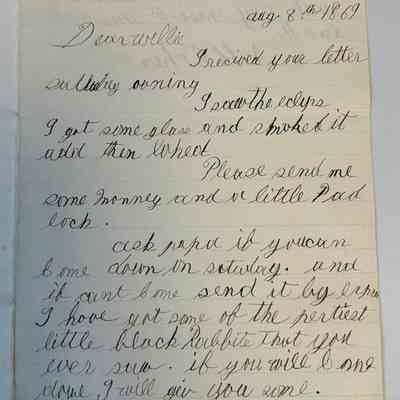 aug 8th 1869
Dear willie
I recived your letter
saturday evning
I saw the eclips
I got some glass and smoked it
and then loked
Please send me
some monney and a little Pad
lock.
ask papa if you can
come down on saturday. and
if cant come send it by expres
I have got some of the pertiest
little black Rabbits that you
ever saw. if you will come
down, I will giv you some.